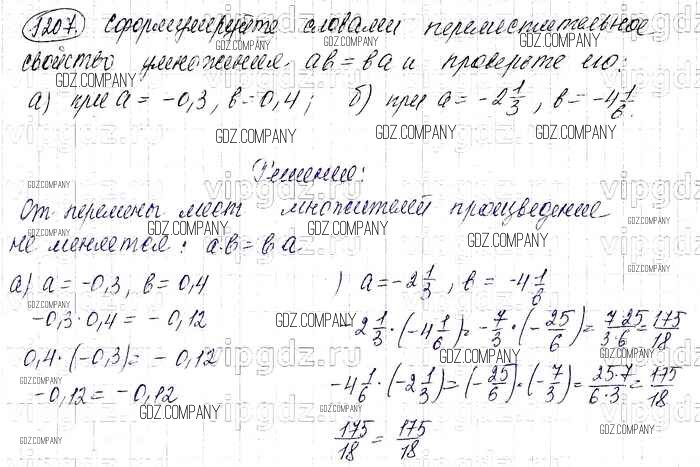 1207. Сформулируйте словами переместительное
свойство умножения ab = ba и проверьте его:
а) при a = -0,3, b = 0,4; б) при a = -2 1/3, b = -4 1/6.
Решение:
От перемены мест множителей произведение
не меняется: a·b = b·a.
а) a = -0,3, b = 0,4
-0,3·0,4 = -0,12
0,4·(-0,3) = -0,12
-0,12 = -0,12
) a = -2 1/3, b = -4 1/6
-2 1/3·(-4 1/6) = -7/3·(-25/6) = 7·25/3·6 = 175/18
-4 1/6·(-2 1/3) = (-25/6)·(-7/3) = 25·7/6·3 = 175/18
175/18 = 175/18
GDZ.COMPANY
vipgdz.ru